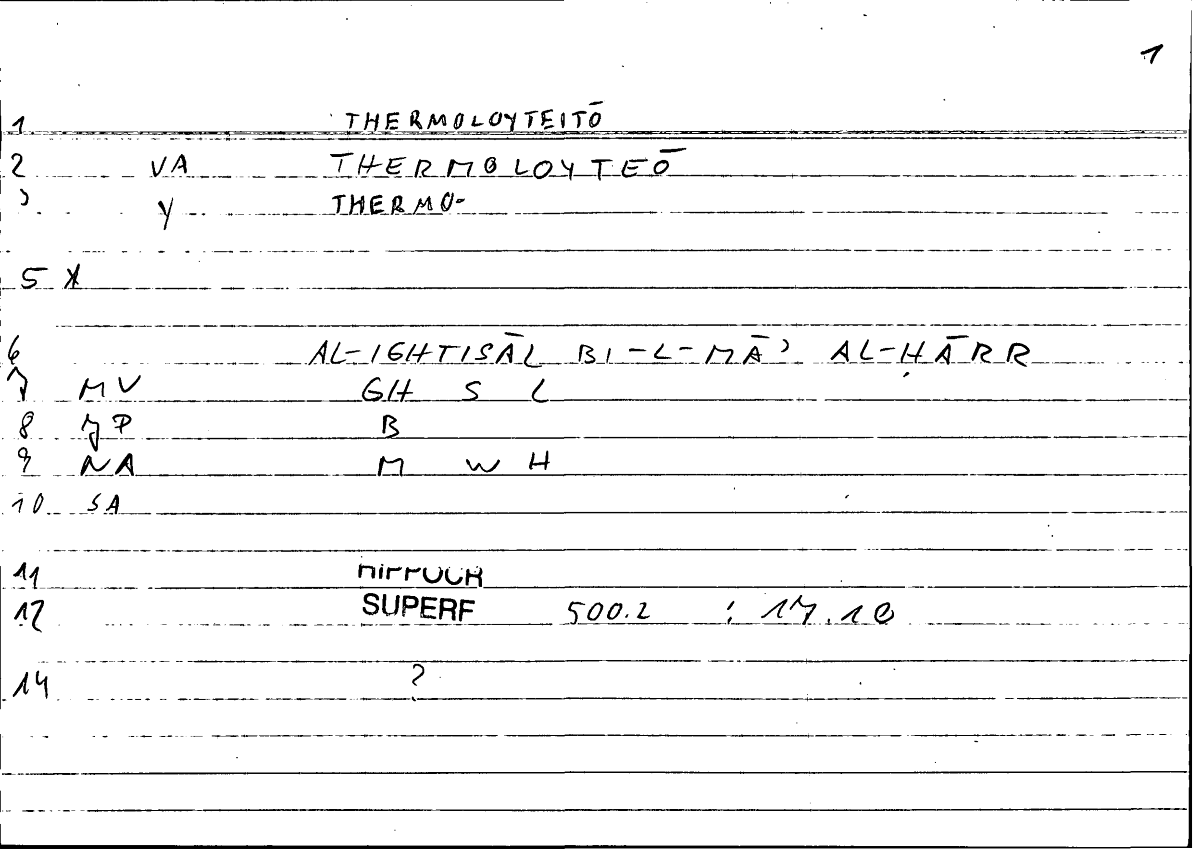 1
1 THERMOLOYTEITŌ
2 VA THERMOLOYTEŌ
Y THERMO-
5 *
6 AL-IGHTISĀL BI-L-MĀʾ AL-ḤĀRR
7 MV GH S L
8 JP B
9 NA M W H
10 SA
11 HIPPOCR
12 SUPERF 500.2 : 17.10
14 ?